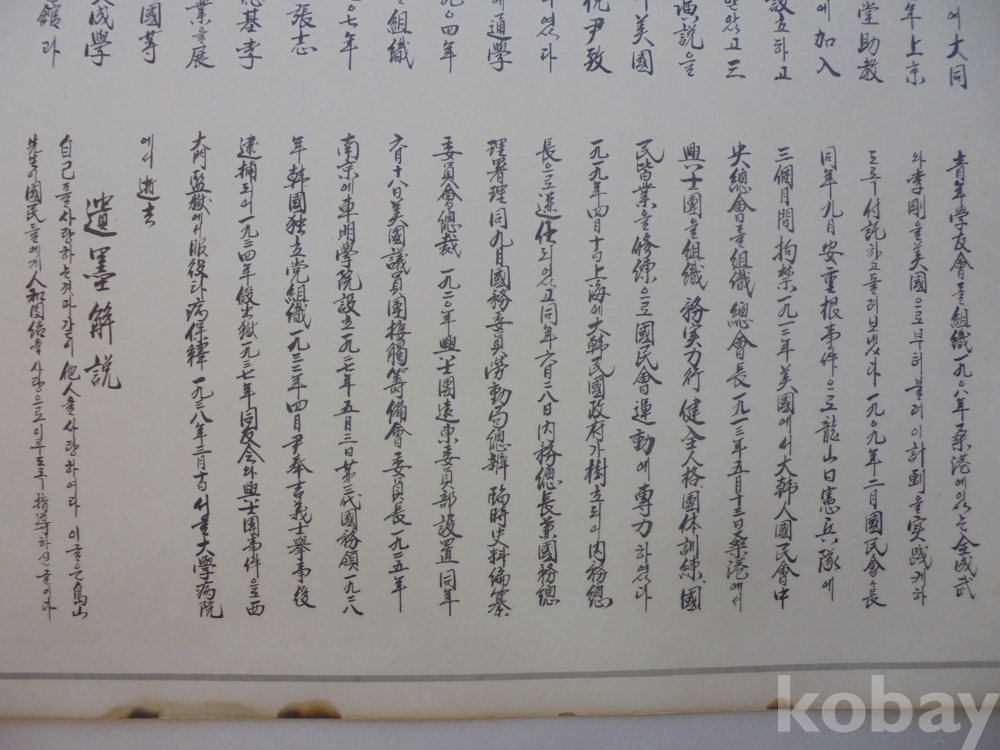 에 大同
年上京
堂助教
에 加入
設立하고
맡았고 三
演說을
美國
尹致
였다
에 通學
九○四年
을 組織
七○七年
張志
基李
業을 展
國等
成學
館라
青年学友會를 組織 一九○八年 桑港에 있는 全成武
와 李剛을 美國으로부터 불러 이 計劃을 実践케 하
도록 付託하고 돌려보냈다 一九○九年 二月 國民會長
同年 九月 安重根 事件으로 龍山 日憲兵隊에
三個月間 拘禁 一九一二年 美國에서 大韓人國民會 中
央總會를 組織 總會長 一九一三年 五月 十三日 桑港에서
興士團을 組織 務実力行 健全人格 團体訓練、國
民皆業을 修練으로 國民會 運動에 專力하였다
一九一九年 四月 十日 上海에 大韓民國政府가 樹立되어 內務總
長으로 選任되였고 同年 六月 二八日 內務總長 兼 國務總
理署理 同九月 國務委員 勞動局總辦 臨時史料編纂
委員會總裁 一九二○年 興士團遠東委員部 設置 同年
六月 十八日 美國議員團 接觸籌備會 委員長 一九二五年
南京에 東明學院 設立 一九二七年 五月 三日 第三代 國務領 一九二八
年 韓國独立党 組織 一九三二年 四月 尹奉吉義士 擧事 後
逮捕되어 一九三四年 假出獄 一九三七年 同友会와 興士團 事件으로 西
大門監獄에서 服役타 病保釋 一九三八年 三月 十日 서울大学病院
에서 逝去
遺墨解說
自己를 사랑하는 것과 같이 他人을 사랑하여라 이 글은 島山
先生이 國民들에게 人和団結을 사랑으로 이루도록 指導하신 글이다
kobay